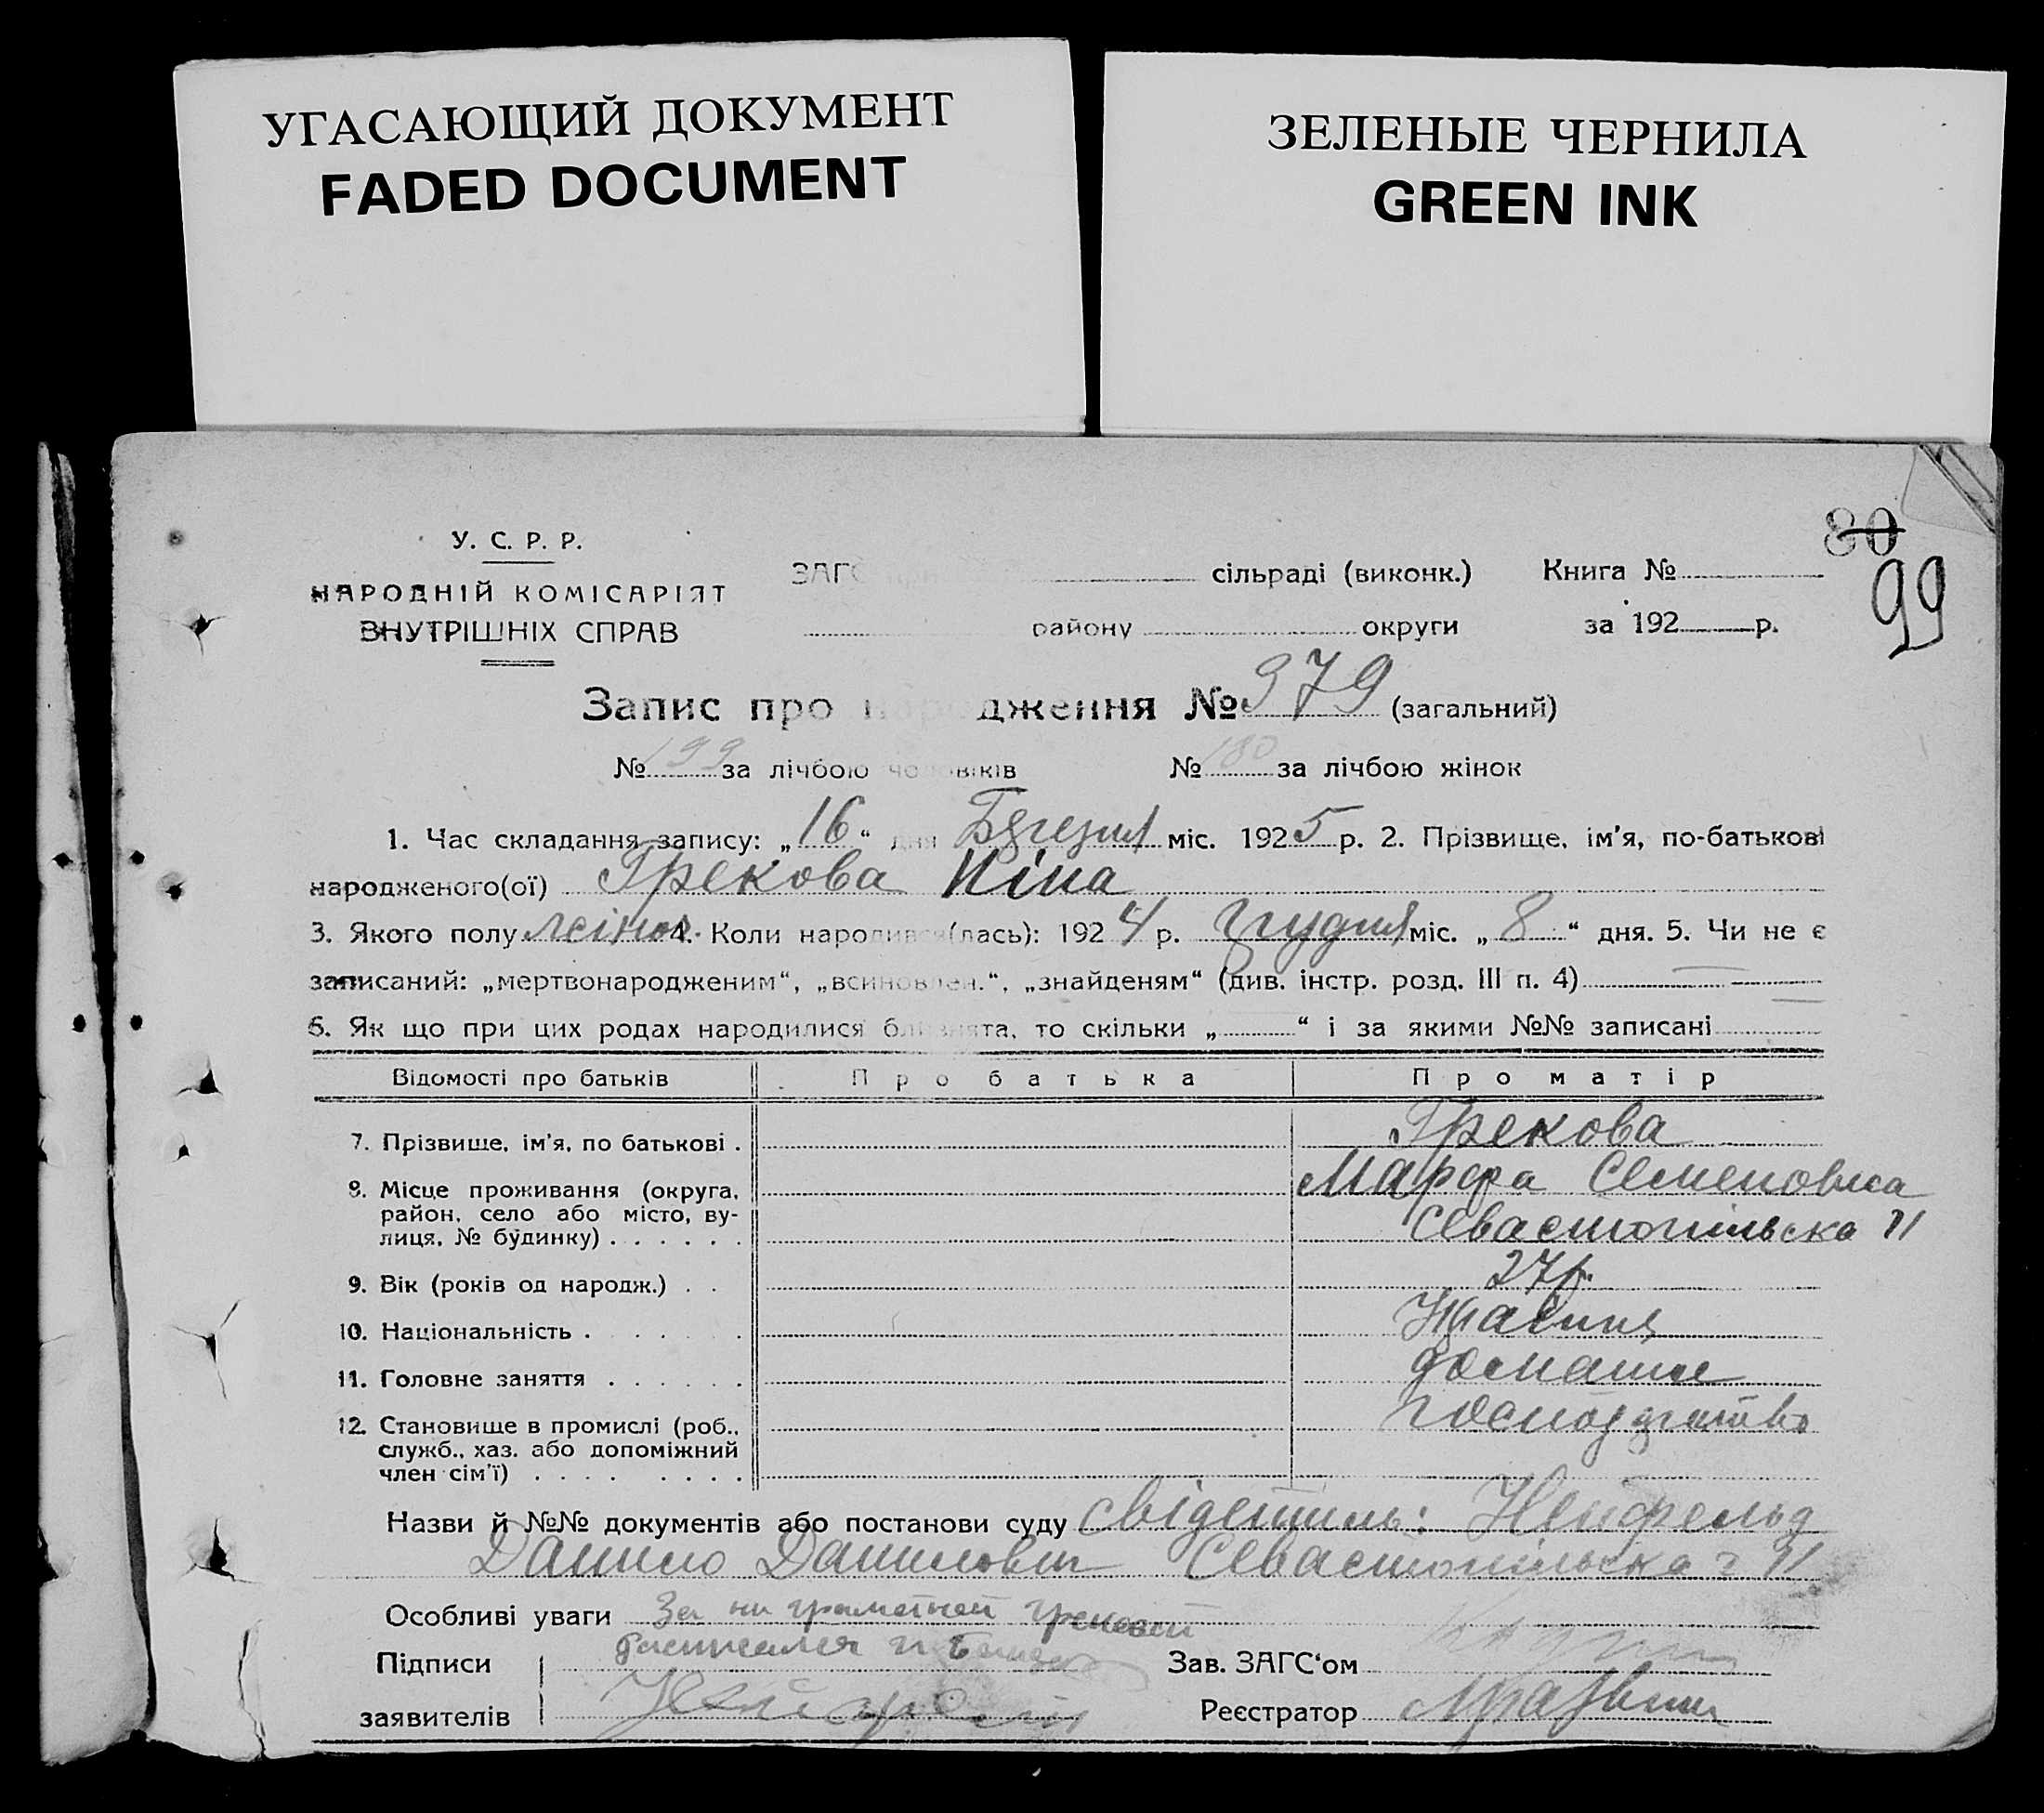 УГАСАЮЩИЙ ДОКУМЕНТ
FADED DOCUMENT
ЗЕЛЕНЫЕ ЧЕРНИЛА
GREEN INK
80
99
У. С. Р. Р.
НАРОДНІЙ КОМІСАРІЯТ
ВНУТРІШНІХ СПРАВ
ЗАГС при сільраді (виконк.) Книга №
району округи за 192 р.
Запис про народження № 379 (загальний)
№ 199 за лічбою чоловіків № 180 за лічбою жінок
1. Час складання запису: „16“ дня Березня міс. 1925 р. 2. Прізвище, ім'я, по-батькові
народженого(ої) Грекова Ніна
3. Якого полу жіноч. 4. Коли народився(лась): 1924 р. грудня міс. „8“ дня. 5. Чи не є
записаний: „мертвонародженим“, „всиновлен.“, „знайденям“ (див. інстр. розд. III п. 4)
6. Як що при цих родах народилися близнята, то скільки „ “ і за якими №№ записані
Відомості про батьків Про батька Про матір
7. Прізвище, ім'я, по батькові . Грекова
Марфа Семеновна
8. Місце проживання (округа,
район, село або місто, ву-
лиця, № будинку) . . . . . . Севастопільска 11
9. Вік (років од народж.) . . 27р.
10. Національність . . . . . . .
11. Головне заняття . . . . . . домашнє
господарство
12. Становище в промислі (роб.,
служб., хаз. або допоміжний
член сім'ї) . . . . . . . .
Назви й №№ документів або постанови суду свідетиль: Нейфельд
Данило Данилович Севастопільска 11
Особливі уваги За ни грамотной Грековой
Підписи росписался Зав. ЗАГС'ом
заявителів Реєстратор